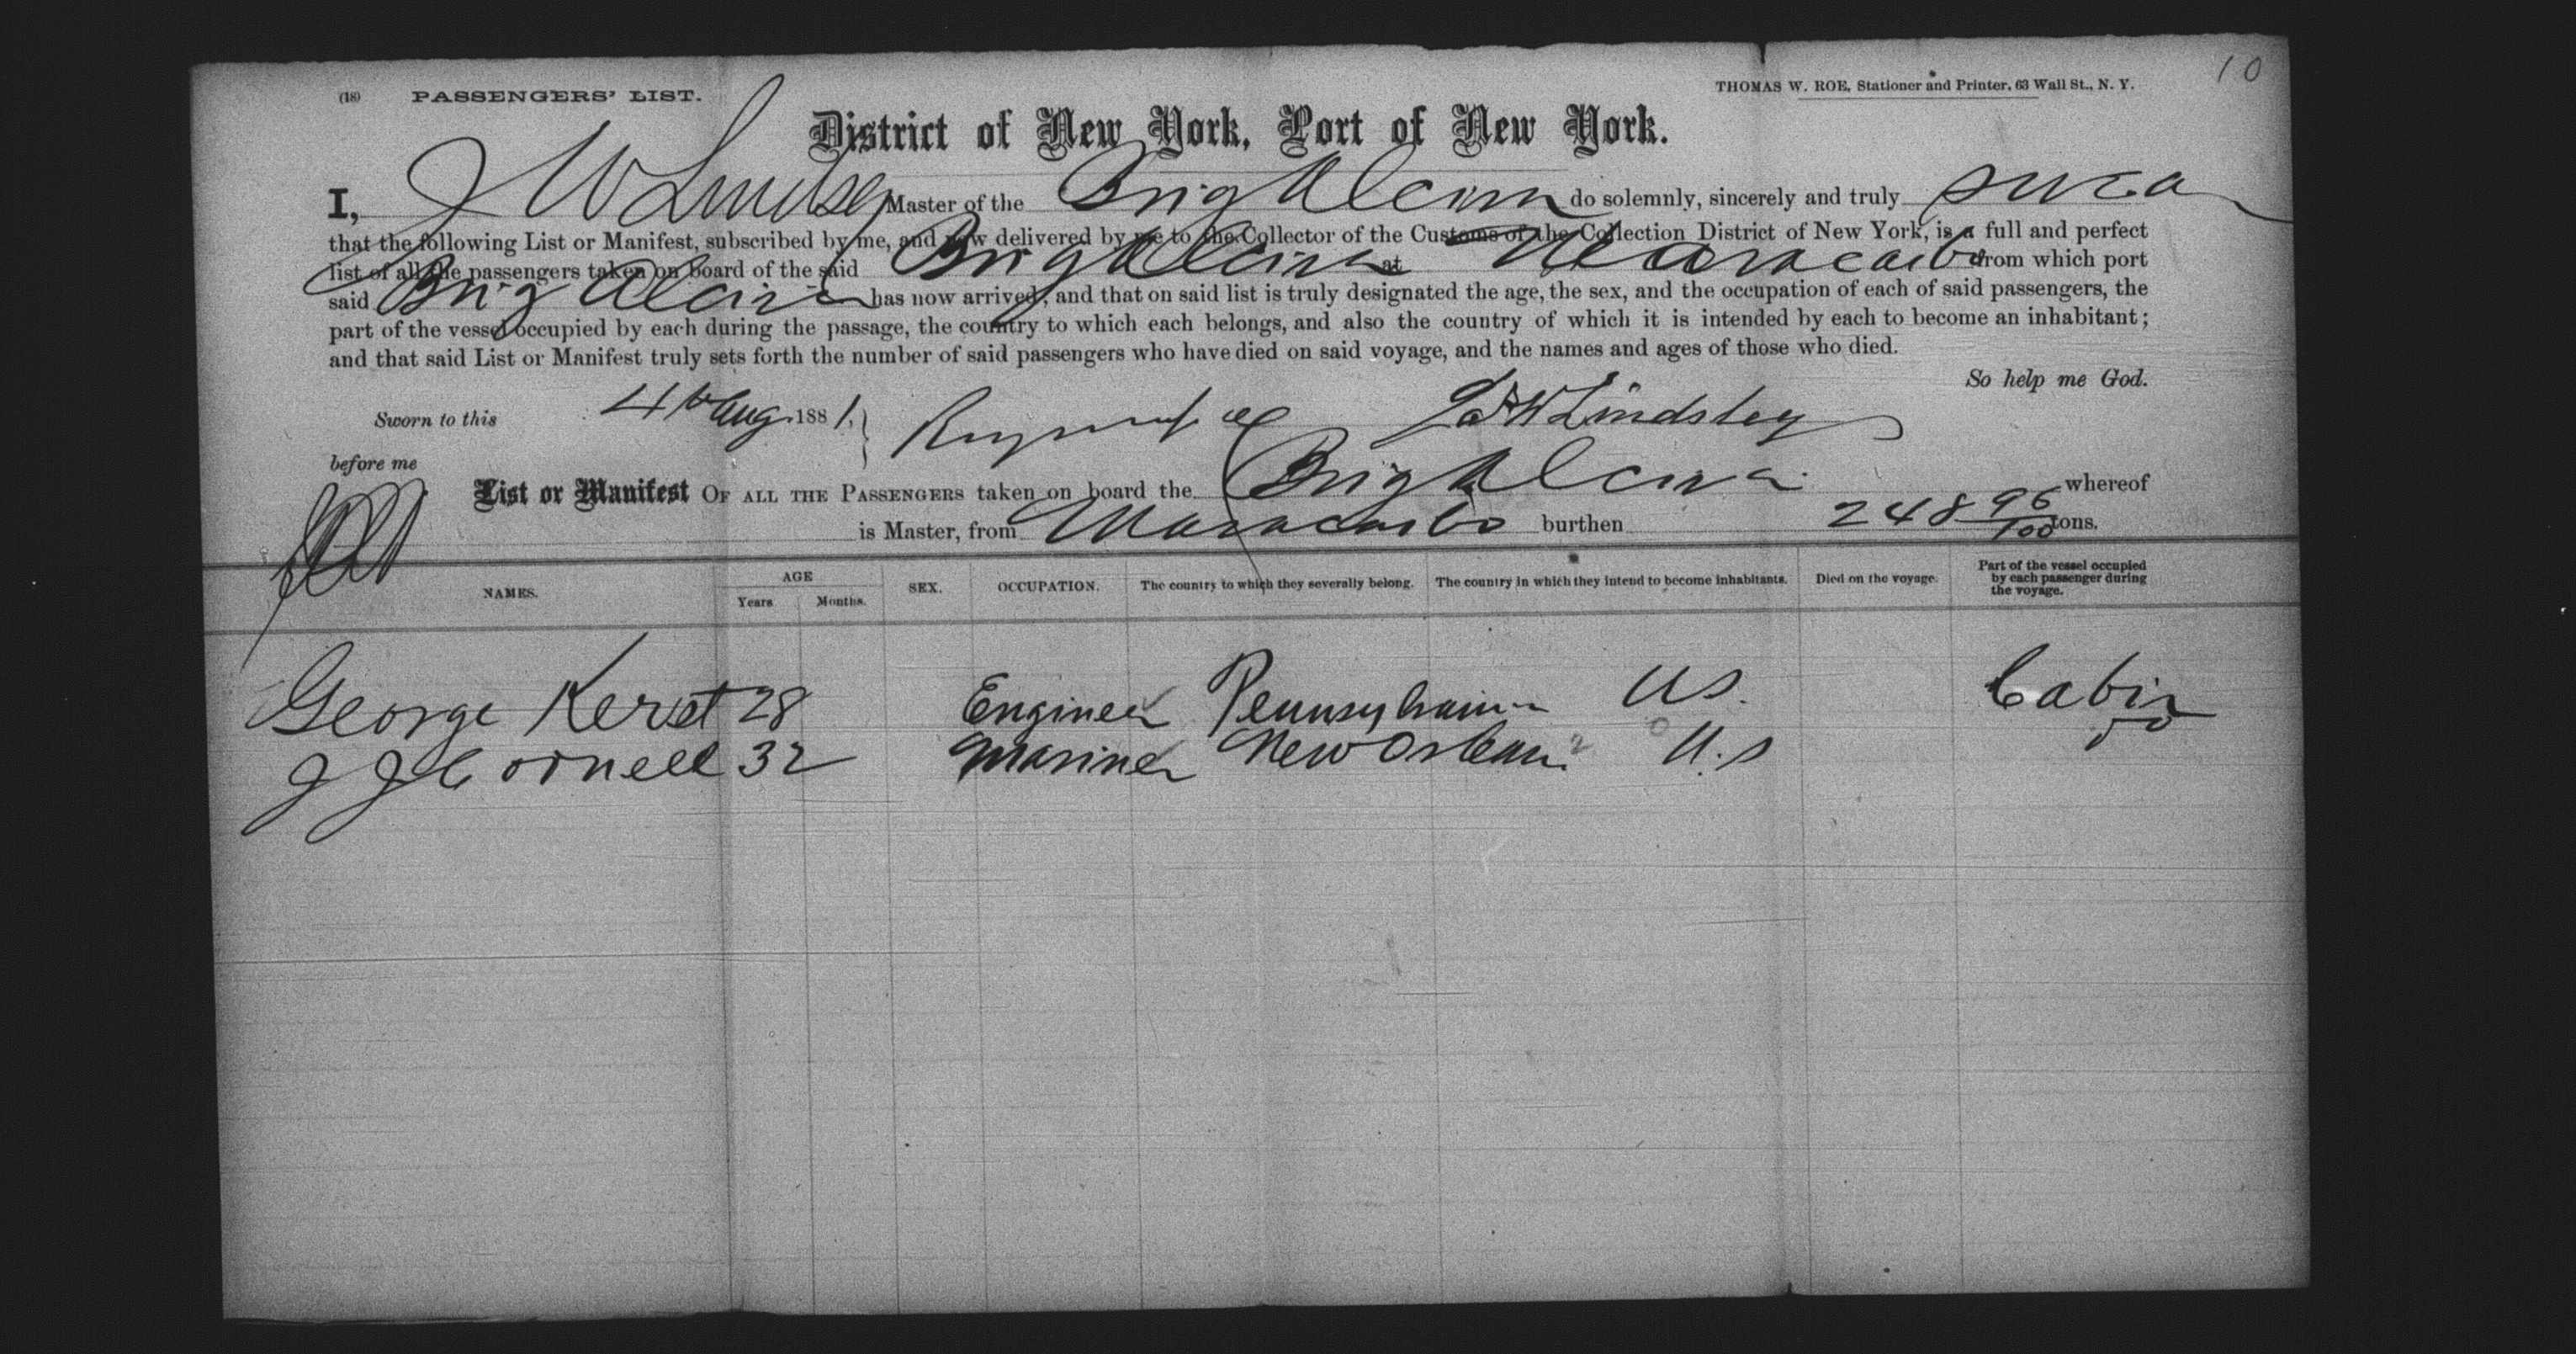 10
(18) PASSENGERS' LIST. THOMAS W. ROE, Stationer and Printer, 63 Wall St., N. Y.
District of New York, Port of New York.
I, J W Lindsey Master of the Brig Alcira do solemnly, sincerely and truly swear
that the following List or Manifest, subscribed by me, and now delivered by me to the Collector of the Customs of the Collection District of New York, is a full and perfect
list of all the passengers taken on board of the said Brig Alcira at Maracaibo from which port
said Brig Alcira has now arrived, and that on said list is truly designated the age, the sex, and the occupation of each of said passengers, the
part of the vessel occupied by each during the passage, the country to which each belongs, and also the country of which it is intended by each to become an inhabitant;
and that said List or Manifest truly sets forth the number of said passengers who have died on said voyage, and the names and ages of those who died.
So help me God.
Sworn to this 4th Aug. 1881, Lindsley
before me
List or Manifest OF ALL THE PASSENGERS taken on board the Brig Alcira whereof
is Master, from Maracaibo burthen 248 96/100 tons.
NAMES. AGE Years Months. SEX. OCCUPATION. The country to which they severally belong. The country in which they intend to become inhabitants. Died on the voyage. Part of the vessel occupied by each passenger during the voyage.
George Kerst 28 Engineer Pennsylvania US. Cabin
J J Cornell 32 Mariner New Orleans U.S do